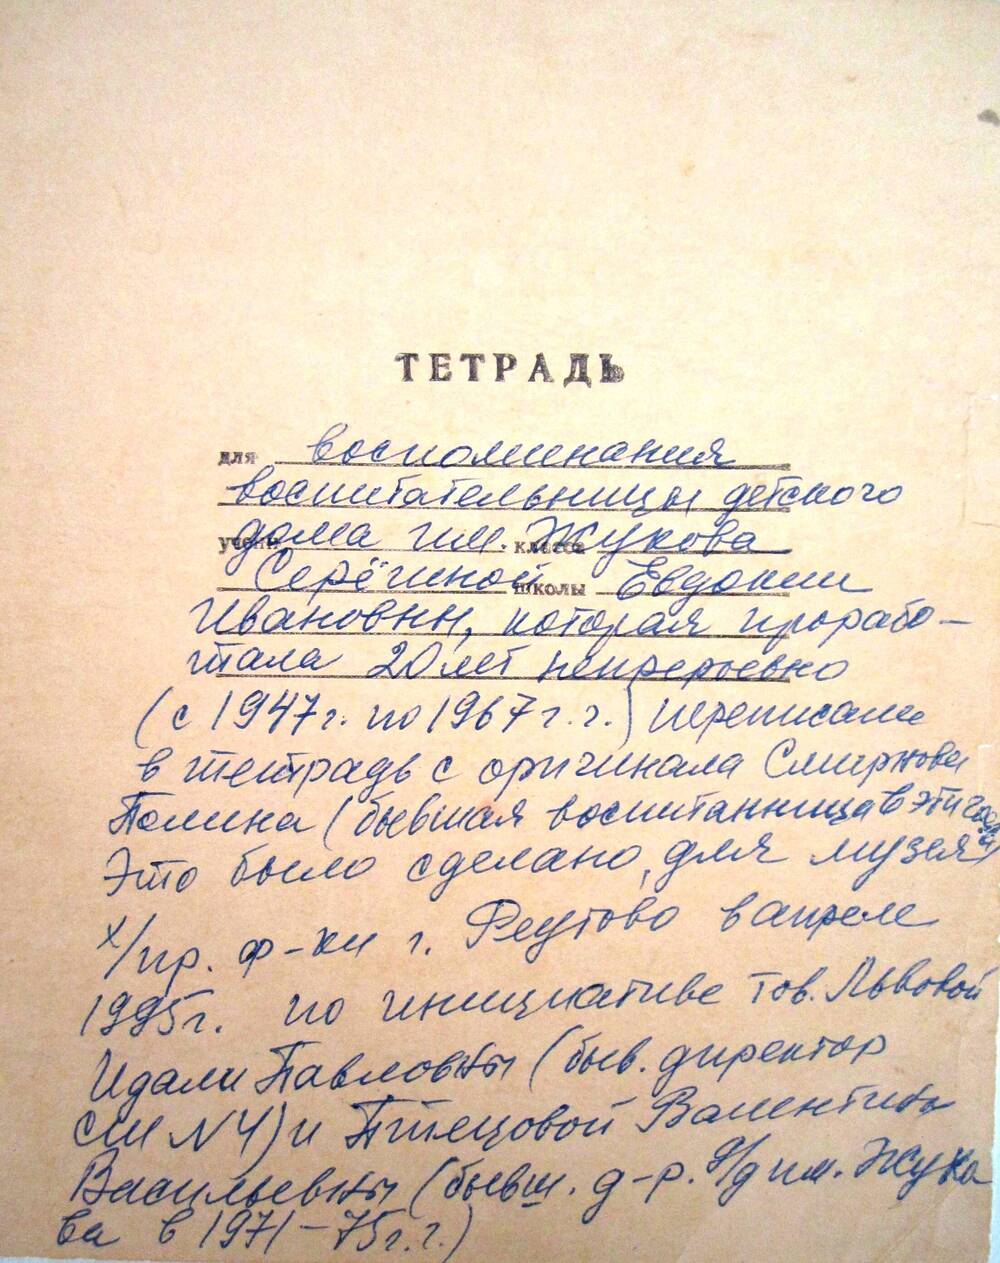 ТЕТРАДЬ
для воспоминания
воспитательницы детского
учени дома им. класса Жукова
Серёгиной школы Евдокии
Ивановны, которая прорабо-
тала 20 лет непрерывно
(с 1947г. по 1967г.г.) переписала
в тетрадь с оригинала Смирнова
Полина (бывшая воспитанница в эти годы)
Это было сделано для музея
х/пр. ф-ки г. Реутово в апреле
1995г. по инициативе тов. Львовой
Идали Павловны (быв. директор
СШ N4) и Птицовой Валентины
Васильевны (бывш. д-р. д/д им. Жуко
ва в 1971-75г.г.)